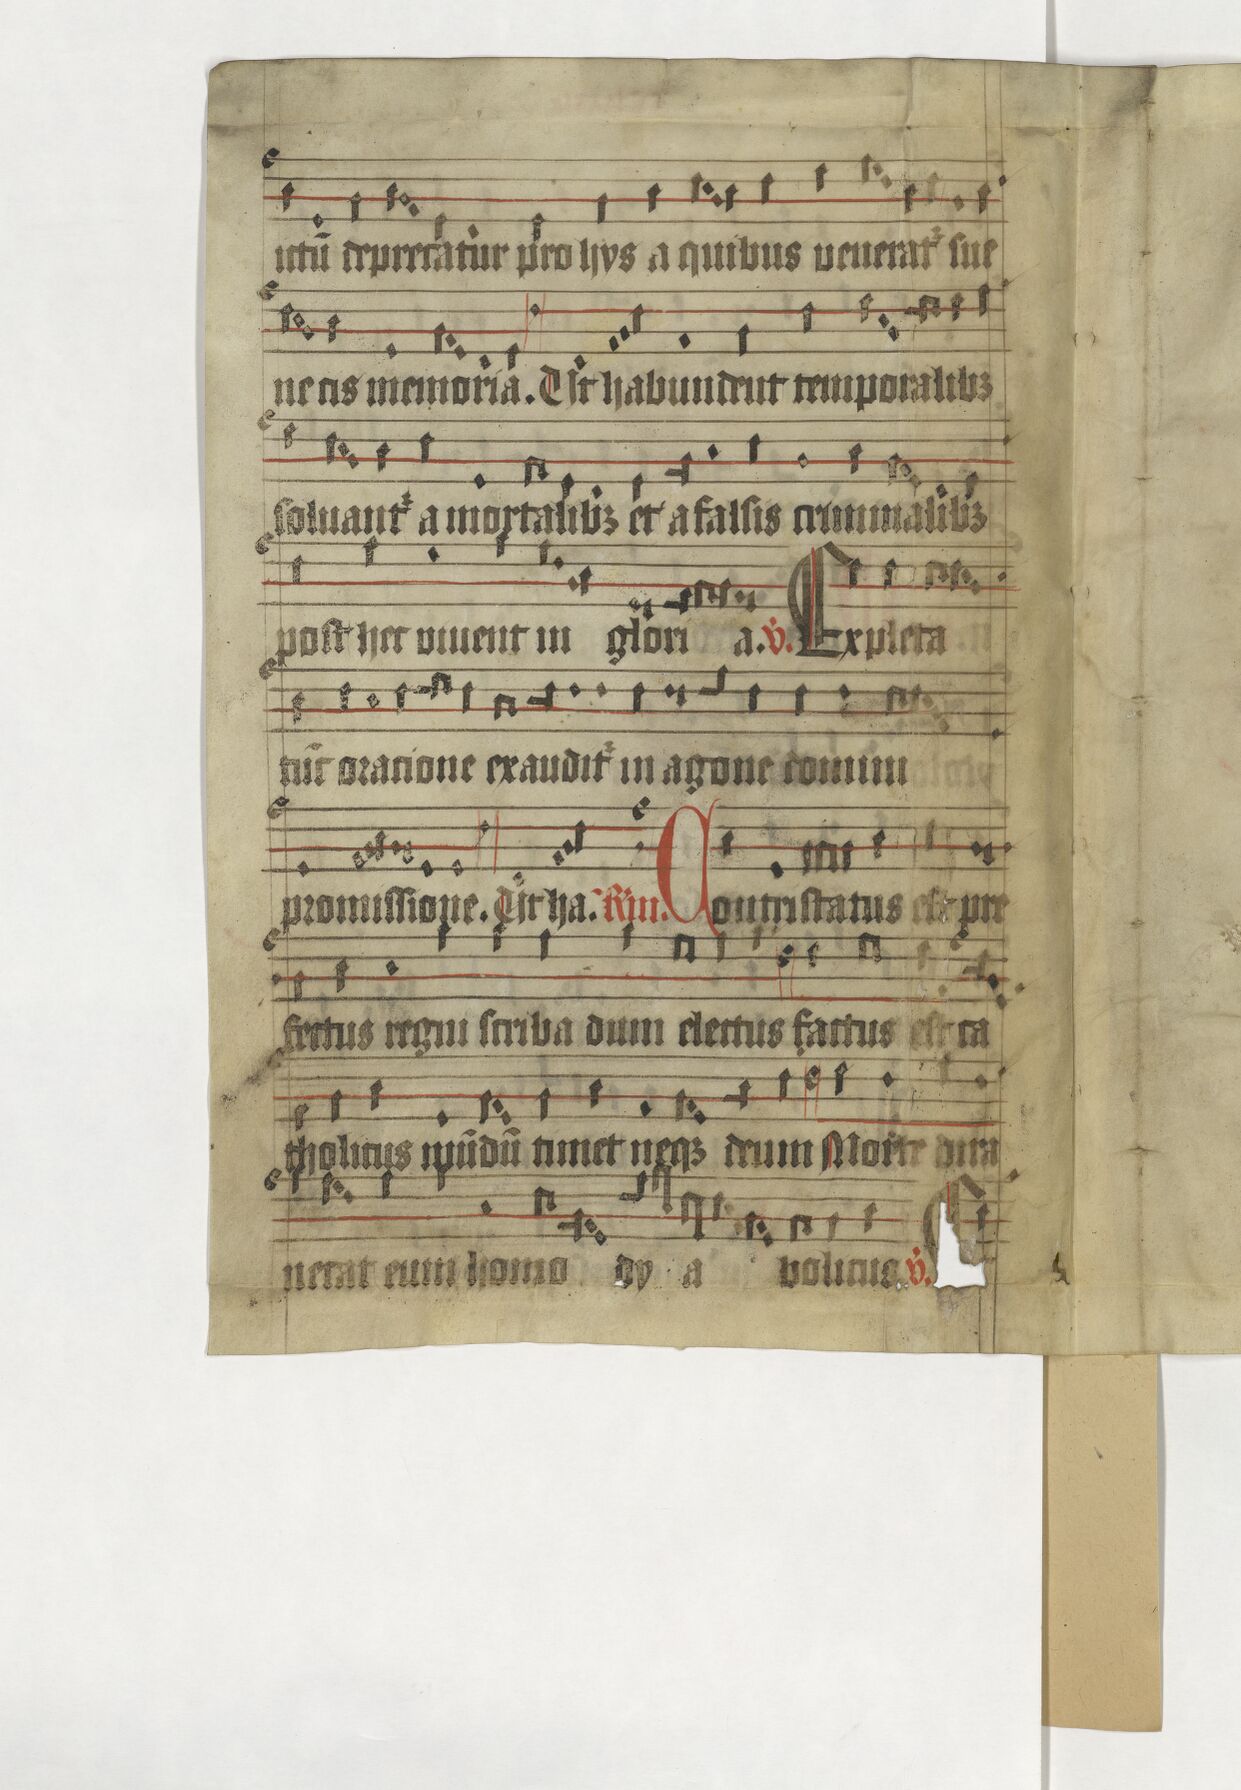 ictū deprecatur pro hys a quibus venerat᷑ sue
necis memoria. Ut habundent temporalibꝫ
soluant᷑ a mortalibꝫ et a falsis criminalibꝫ
post hec viuent in glori a. v̇. Expleta
tūc oracione exaudit᷑ in agone domini
promissione. Ut ha. Rm. Contristatus est pre
fectus regni scriba dum electus factus est ca
tholicus timet neqꝫ deum Morte dira
uerat eum homo dy a bolicus. v̇.